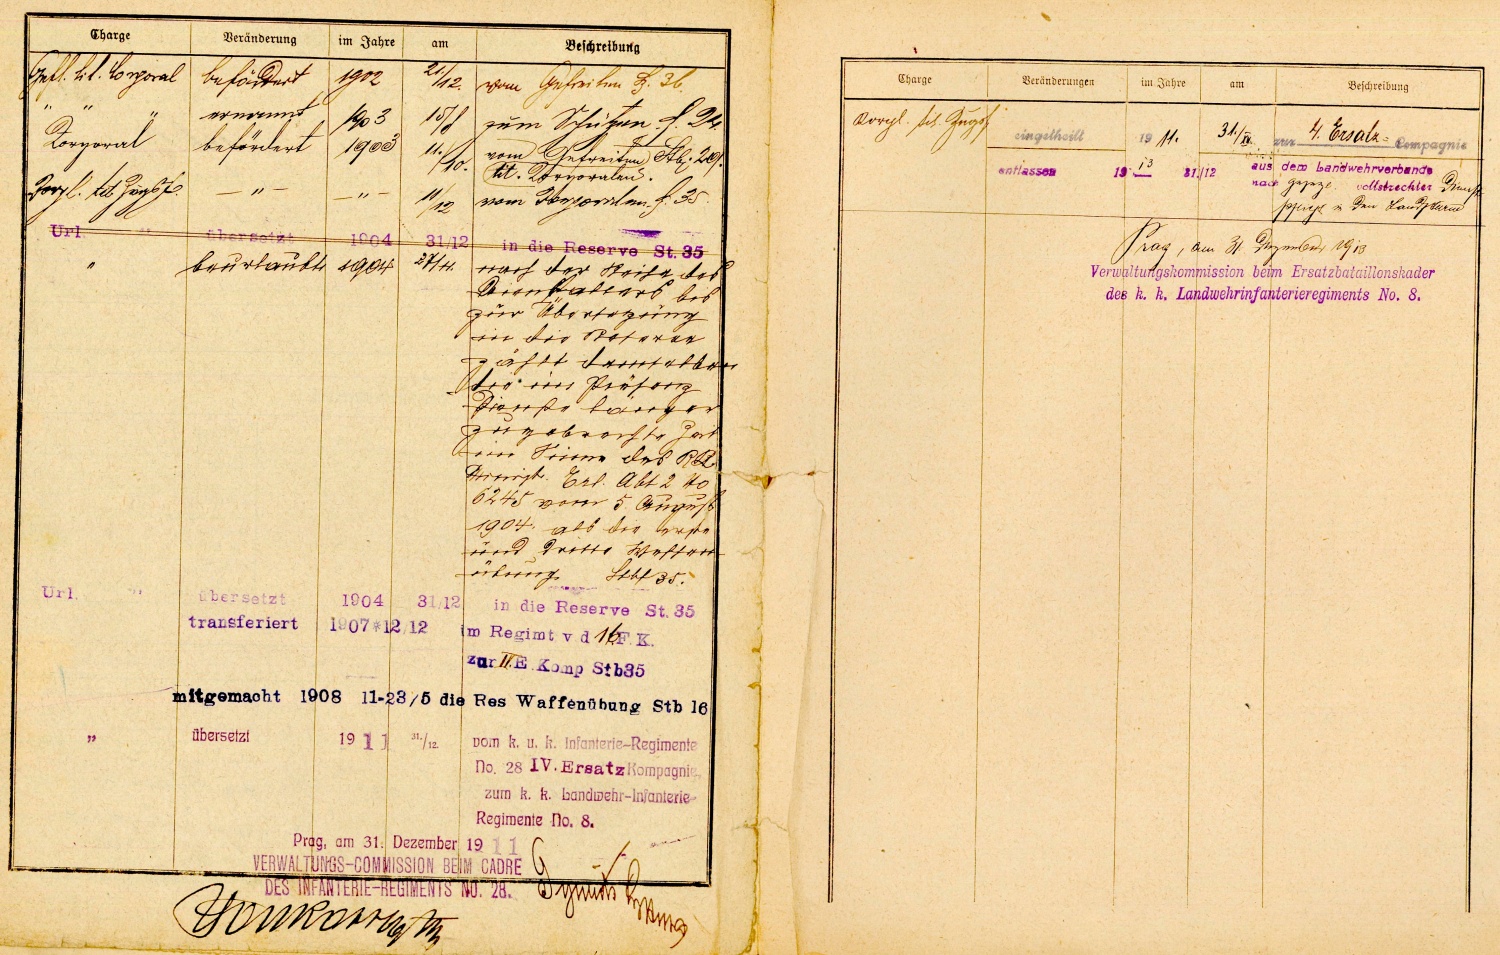 Charge Veränderung im Jahre am Beschreibung
Gefr. tit. Corporal befördert 1902 21/12. vom Gefreiten S. 36.
" " " ernannt 1903 15/8 zum Schützen S. 24.
Corporal befördert 1903 11./10. vom Gefreiten Stb. 291.
tit. Corporalen.
Corpl. tit Zugsf. — " — — " — 11/12 vom Corporalen S. 35
Url. " übersetzt 1904 31/12 in die Reserve St. 35
" beurlaubt 1904 27/4. nach der Reihe des
Dienstalters bis
zur Übersetzung
in die Reserve
zählt demselben
die im Präsenz
Dienste länger
zugebrachte Zeit
im Sinne des
Erl. Abt 2 No
6245 vom 5 August
1904. als die erste
und dritte Waffen
übung Stbl 35.
Url. " übersetzt 1904 31/12 in die Reserve St. 35
transferiert 1907*12/12 im Regimt v d 16 F. K.
zur II. E. Komp Stb35
mitgemacht 1908 11-23/5 die Res Waffenübung Stb 16
" übersetzt 1911 31./12. vom k. u. k. Infanterie-Regimente
No. 28 IV. Ersatz Kompagnie,
zum k. k. Landwehr-Infanterie-
Regimente No. 8.
Prag, am 31. Dezember 1911
VERWALTUNGS-COMMISSION BEIM CADRE
DES INFANTERIE-REGIMENTS NO. 28.
Charge Veränderungen im Jahre am Beschreibung
Corpl. tit. Zugsf. eingetheilt 1911. 31./12. zur 4. Ersatz- Compagnie
entlassen 1913 31./12 aus dem Landwehrverbande
nach gesezl. vollstreckter Dienst-
pflicht in den Landsturm
Prag, am 31. Dezember 1913
Verwaltungskommission beim Ersatzbataillonskader
des k. k. Landwehrinfanterieregiments No. 8.